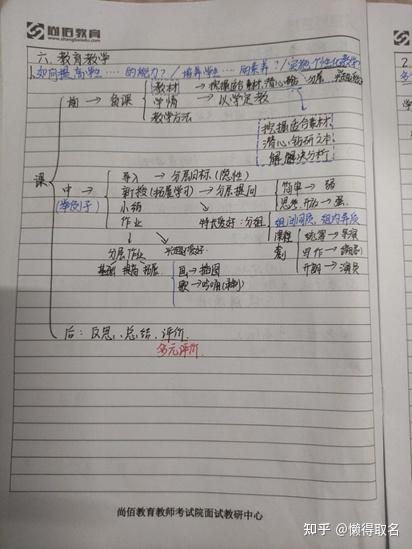 尚佰教育
六、教育教学
如何提高学生……的能力？/培养学生……的素养？/实施个性化教学
教材 → 挖掘适合素材，潜心钻研
前 → 备课 学情 → 以学定教
教学方法
挖掘适合素材
潜心钻研文本
课
导入 → 分层目标（隐性）
中 → 新授（拓展学习）→ 分层提问 简单 → 弱
（举例子） 小结 思维、开放 → 强
作业 特长爱好：分组 组间同质，组内异质
课程 统筹 → 导演
分层作业 兴趣爱好 剧 写作 → 编剧
基础 提高 拓展 画 → 插图 开朗 → 演员
歌 →
后：反思、总结、评价
多元评价
尚佰教育教师考试院面试教研中心
知乎 @懒得取名